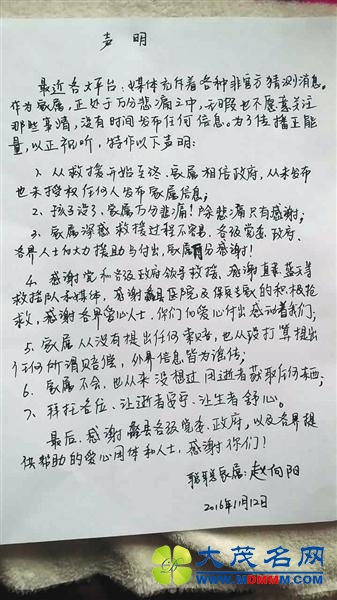 声明
最近各大平台、媒体充斥着各种非官方猜测消息。
作为家属,正处于万分悲痛之中,无暇也不愿意关注
那些事情,没有时间发布任何信息。为了传播正能
量,以正视听,特作以下声明:
1、从救援开始至终,家属相信政府,从未发布
也未授权任何人发布家属信息;
2、孩子没了,家属万分悲痛!除悲痛只有感谢;
3、家属深感救援过程不容易,各级党委、政府、
各界人士的大力援助与付出,家属万分感谢!
4、感谢党和各级政府领导救援,感谢直莱蓝天等
救援队和媒体,感谢蠡县医院及保定专家的积极抢
救,感谢各界爱心人士,你们的爱心付出感动着我们;
5、家属从没有提出任何索赔,也从没打算提出
任何所谓赔偿,外界信息皆为谣传;
6、家属不会,也从来没想过因逝者获取任何东西;
7、拜托各位,让逝者安宁,让生者舒心。
最后,感谢蠡县各级党委、政府,以及各界提
供帮助的爱心团体和人士,感谢你们!
聪聪家属:赵向阳
2016年11月12日
大茂名网
WWW.MDMMM.COM